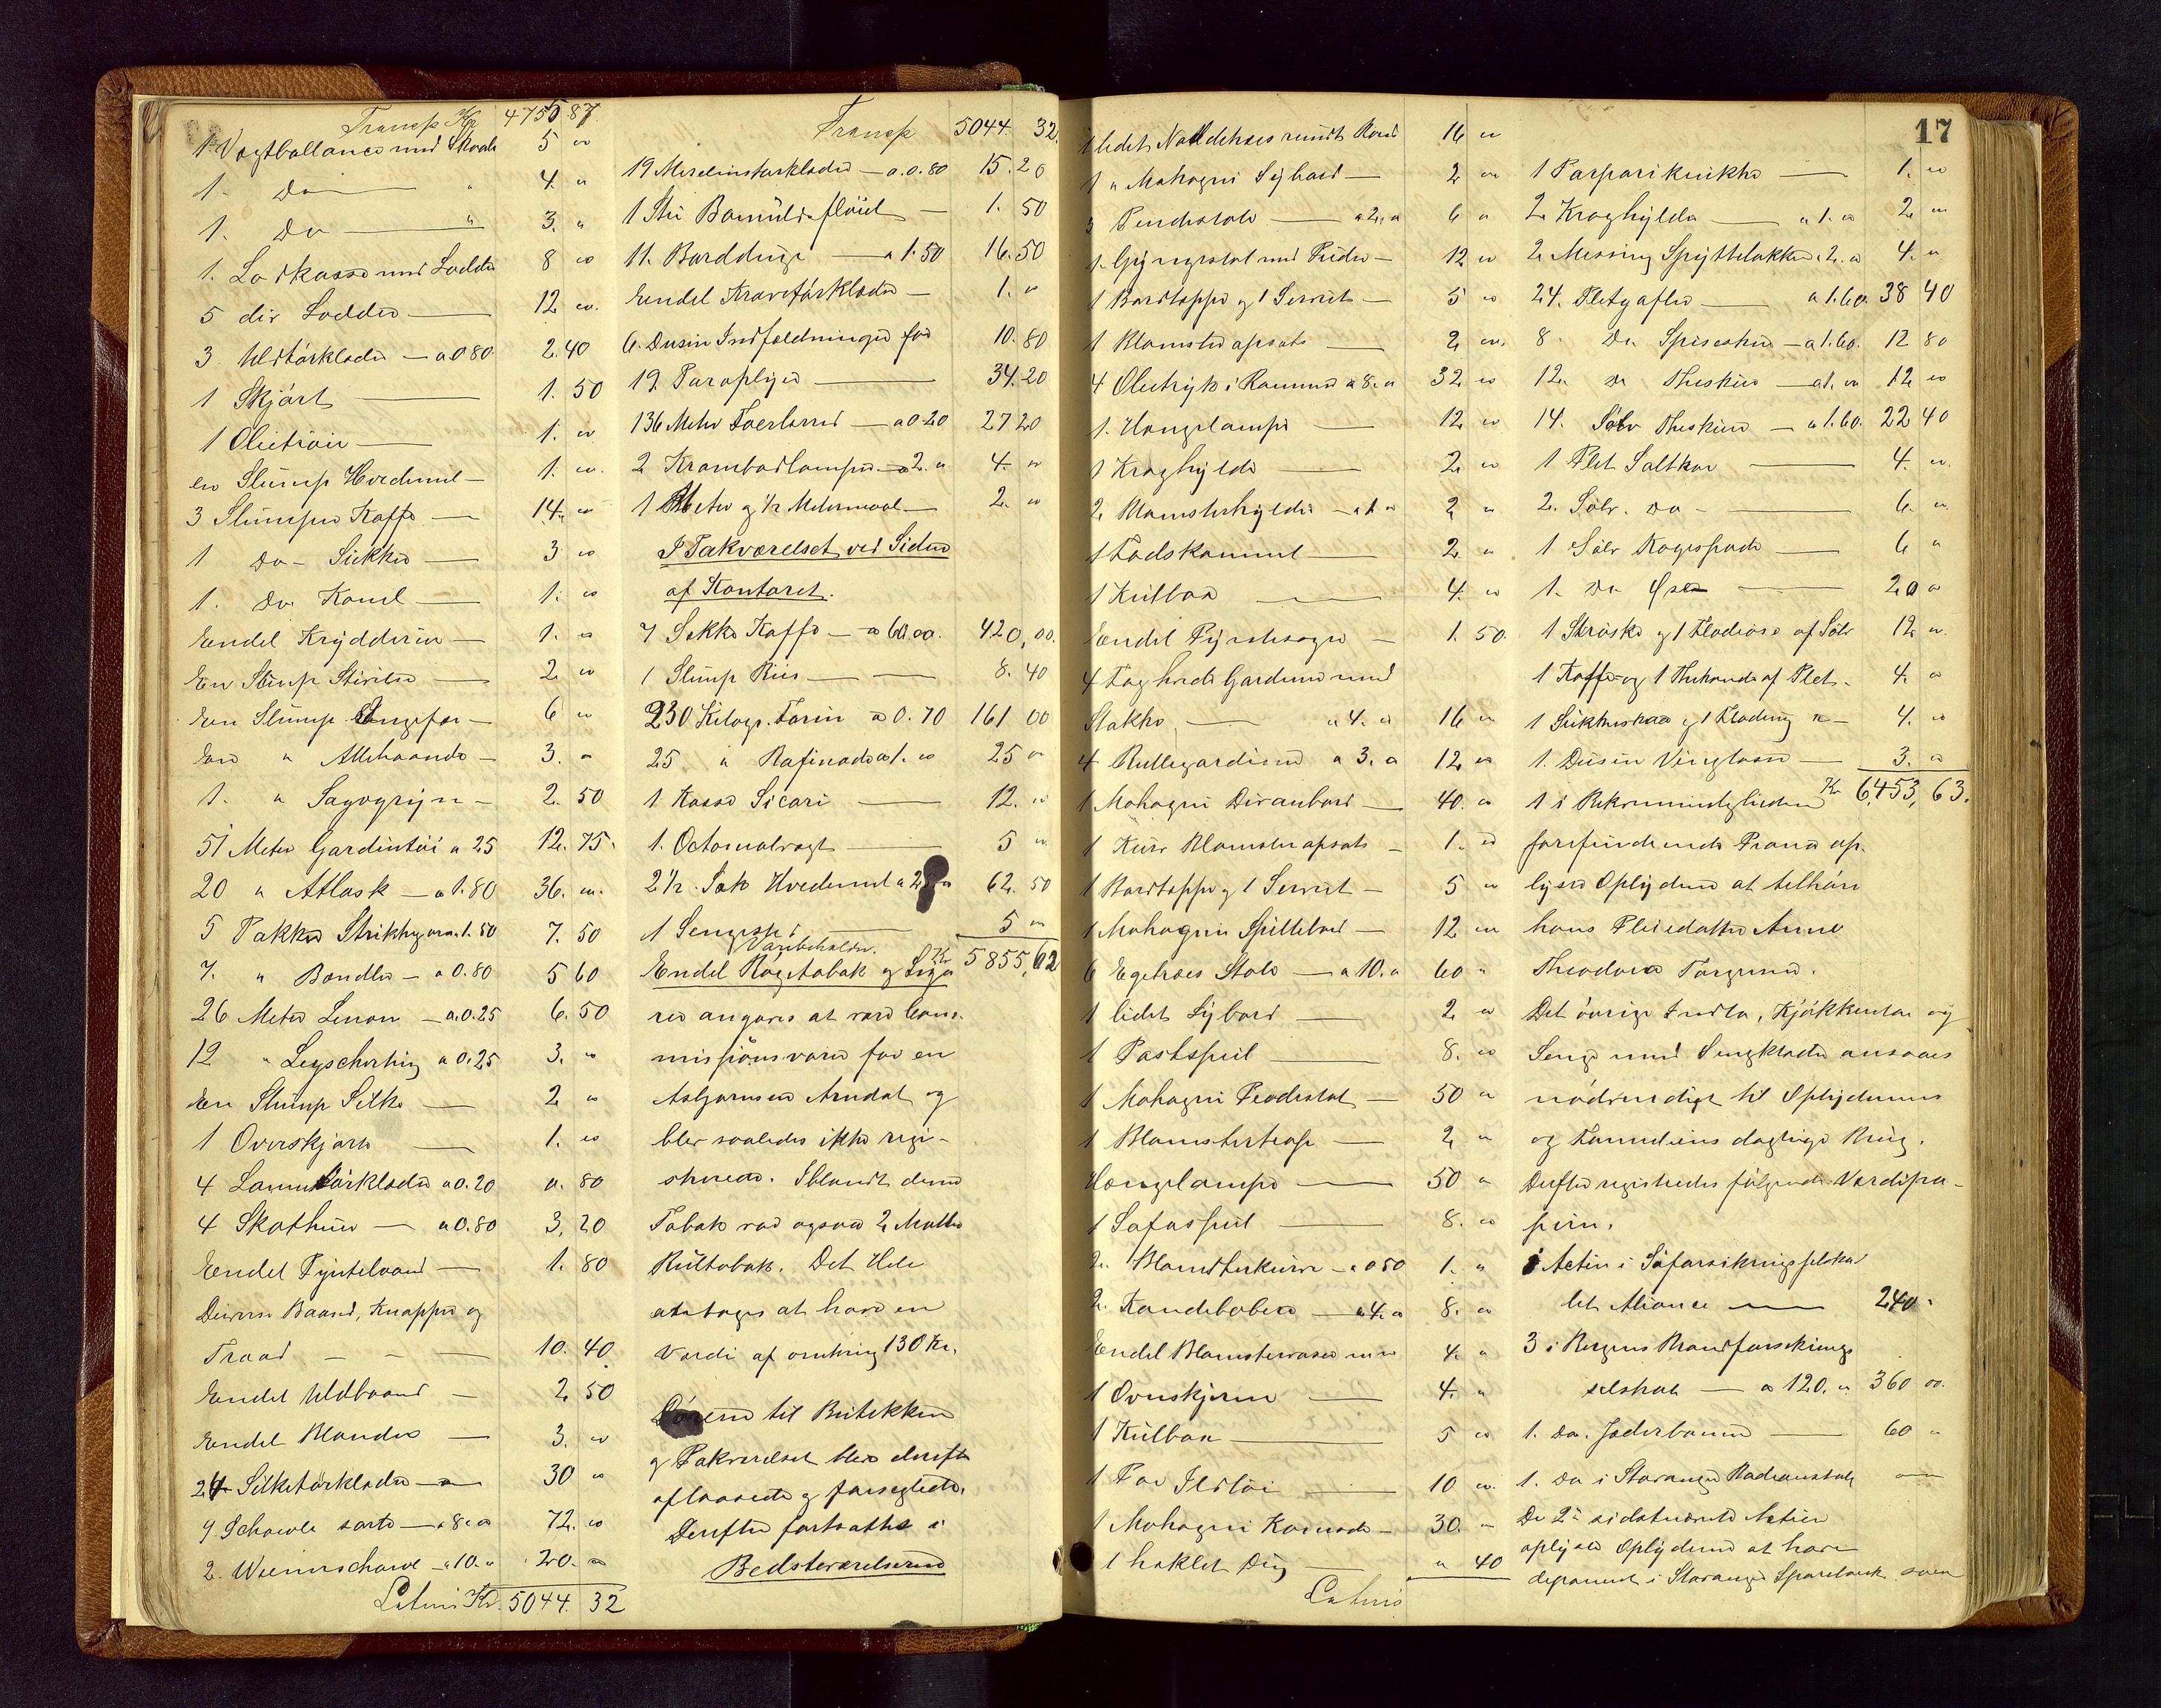 Transp Kr 4750 87
1 Vægtballance med Skaale 5 "
1. Do " 4. "
1. Do " 3. "
1. Lodkasse med Lodder 8 "
5 dir Lodder 12 "
3. Uldtörklæder - a 0 80. 2.40
1 Skjört 1. 50
1 Olietröie 1. "
en Slump Hvedemel 1. "
3 Slumper Kaffe 14. "
1 Do - Sukker 3 "
1. Do Kanel 1. "
Endel Krydderier 1. "
En Slump Stivelse 2 "
En Slump Ingefær 6 "
En " Allehaande 3. "
1. " Sagogryn 2. 50
51 Meter Gardintöi a 25 12. 75.
20 " Atlask - a 1.80 36. "
5 Pakker Strikkegarn a 1.50 7. 50
7. " Bændler - a 0.80 5 60
26 Meter Lenon - a 0.25 6. 50
12 " Skjorting a 0.25 3. "
En Slump Silke 2 "
1 Overskjört 1. "
4 Lommetörklæder a 0.20 ". 80
4 Skathuer - a 0.80 3. 20
Endel Pyntebaand 1. 80
Diverse Baand, Knapper og
Traad 10. 40
Endel Uldbaand 2 50
Endel Blonder 3. "
24 Silketörklæder 30 "
9 Schawle sorte - a 8. " 72. "
2. Wienerschawl - a 10. " 20. "
Latus Kr. 5044. 32
Transp 5044. 32
19 Merelinstörklæder - a 0.80 15.20
1 Stk Bomuldsflöiel 1. 50
11. Borddug - a 1.50 16.50
Endel Kravetörklæder 1. "
6. Dusin Indfældninger for 10. 80
19. Paraplyer 34. 20
136 Meter Foerlærred - a 0 20 27 20
2 Krambodlamper - a 2. " 4. "
1 Meter og 1/2 Metermaal 2. "
I Pakværelset ved Siden
af Kontoret.
7 Sække Kaffe - a 60.00. 420,00.
1 Slump Riis 8. 40
230 Kilogr. Farin a 0.70 161 00
25 " Rafinade a 1. " 25 "
1 Kasse Sicori 12. "
1. Octomalvægt 5 "
2 1/2. Sæk Hvedemel a 25 " 62. 50
1 Sengesk: 5 "
Kr 5855,62
Varebeholdn.
Endel Rögetobak og Siga
rer angaves at være Com-
missionsvarer for en
Asbjørnsen Arendal og
blev saaledes ikke regi-
streret. Iblandt denne
Tobak var ogsaa 2 Matter
Rultobak. Det Hele
antages at have en
Værdi af omkring 130 Kr.
Dörene til Butikken
og Pakværelset blev derefter
aflaasede og forseglede.
Derefter fortsattes i
Bedsteværelserne
1 lidet Nøddetræes rundt Bord 16 "
1 " Mahogni Sybord 2 "
3 Pindestole - a 2. " 6 "
1. Gyngestol med Puder 12 "
1 Bordtæppe og 1 Serviet 5 "
1 Blomsteropsats 2 "
4 Olietryk i Rammer a 8. " 32 "
1. Hængelampe 12 "
1 Kroghylde 2 "
2 Blomsterhylder - a 1 " 2 "
1 Fodskammel 2 "
1 Kulbox 4. "
Endel Pyntesager 1. 50.
4 Fag hvide Gardiner med
Stokke a 4. " 16 "
4 Rullegardiner a 3. " 12 "
1 Mahogni Divanbord 40. "
1 Kurv Blomsteropsats 1. "
1 Bordtæppe og 1 Serviet 5 "
1 Mahogni Spillebord 12 "
6 Egetræes Stole - a 10. " 60 "
1 lidet Sybord 2 "
1 Postspeil 8. "
1 Mahogni Piedestal 50 "
1 Blomstertrap 2 "
Hængelampe 50 "
1 Sofaspeil 8. "
2. Blomsterkurve - a 0 50 1. "
2. Kandelabere - a 4. " 8. "
Endel Blomstervaser m m 4. "
1 Ovnskjerm 4. "
1 Kulbox 5 "
1 Par Ildtöi 10 "
1 Mahogni Komode 30. "
1 heklet Dug " 40
Latus
17
1 Parparikrukke 1. "
2 Kroghylder a 1. " 2 "
2 Messing Spyttebakker a 2. " 4. "
24. Pletgafler a 1.60. 38 40
8 Do Spiseskeer - a 1.60. 12 80
12. do Theskeer - a 1. " 12 "
14. Sölv Theskeer - a 1.60. 22 40
1 Plet Saltkar 4. "
2. Sölv. Do 6. "
1 Sölv Kagespade 6 "
1. Do Öse 20 "
1 Ströske og 1 Flødeøse af Sölv 12 "
1 Kaffe- og 1 Thekande af Plet. 4. "
1 Sukkerskaal og 1 Flødemug " 4. "
1. Dusin Vinglas 3. "
Kr 6,453,63.
1 i Bekvemmeligheden
forefindende Piano op-
lyser Oplyderen at tilhöre
hans Pleiedatter Anne
Theodora Torgersen.
Det övrige Indbo, Kjökkentöi og
Senge med Sengklæder ansaaes
nödvendigt til Oplyderens
og Familiens daglige Brug.
Derefter registredes fölgende Værdipa-
pirer.
Actier i Söforsikringsselska-
bet Aliance 240 "
3 i Bergens Brandforsikrings
selskab a 120. " 360 00.
1. Do. Jæderbanen 60 "
1. Do i Stavanger Badeanstalt "
De 2de sidstnævnte Aktier
oplyser Oplyderen at have
deponeret i Stavanger Sparebank som